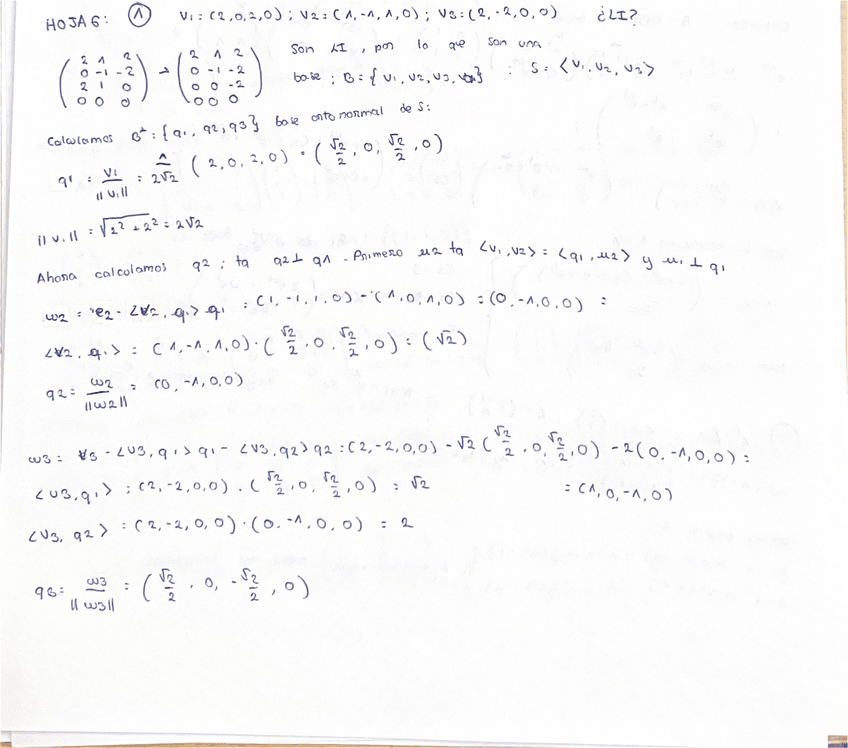 HOJA 6: ① V1 = (2,0,2,0) ; V2 = (1,-1,1,0) ; V3 = (2,-2,0,0) ¿LI?
( 2 1 2 ; 0 -1 -2 ; 2 1 0 ; 0 0 0 ) → ( 2 1 2 ; 0 -1 -2 ; 0 0 -2 ; 0 0 0 ) Son LI, por lo que son una
base ; B = { V1, V2, V3, } : S = <V1, V2, V3>
Calculamos B* = { q1, q2, q3 } base ortonormal de S:
q1 = V1/||V1|| = 1/2√2 (2,0,2,0) = (√2/2, 0, √2/2, 0)
||V1|| = √2² + 2² = 2√2
Ahora calculamos q2 ; tq q2 ⊥ q1 . Primero u2 tq <V1, V2> = <q1, u2> y u1 ⊥ q1
w2 = e2 - <V2, q1> q1 = (1,-1,1,0) - (1,0,1,0) = (0,-1,0,0) =
<V2, q1> = (1,-1,1,0) · (√2/2, 0, √2/2, 0) = (√2)
q2 = w2/||w2|| = (0,-1,0,0)
w3 = V3 - <V3, q1> q1 - <V3, q2> q2 = (2,-2,0,0) - √2 (√2/2, 0, √2/2, 0) - 2(0,-1,0,0) =
<V3, q1> = (2,-2,0,0) · (√2/2, 0, √2/2, 0) = √2 = (1,0,-1,0)
<V3, q2> = (2,-2,0,0) · (0,-1,0,0) = 2
q3 = w3/||w3|| = (√2/2, 0, -√2/2, 0)